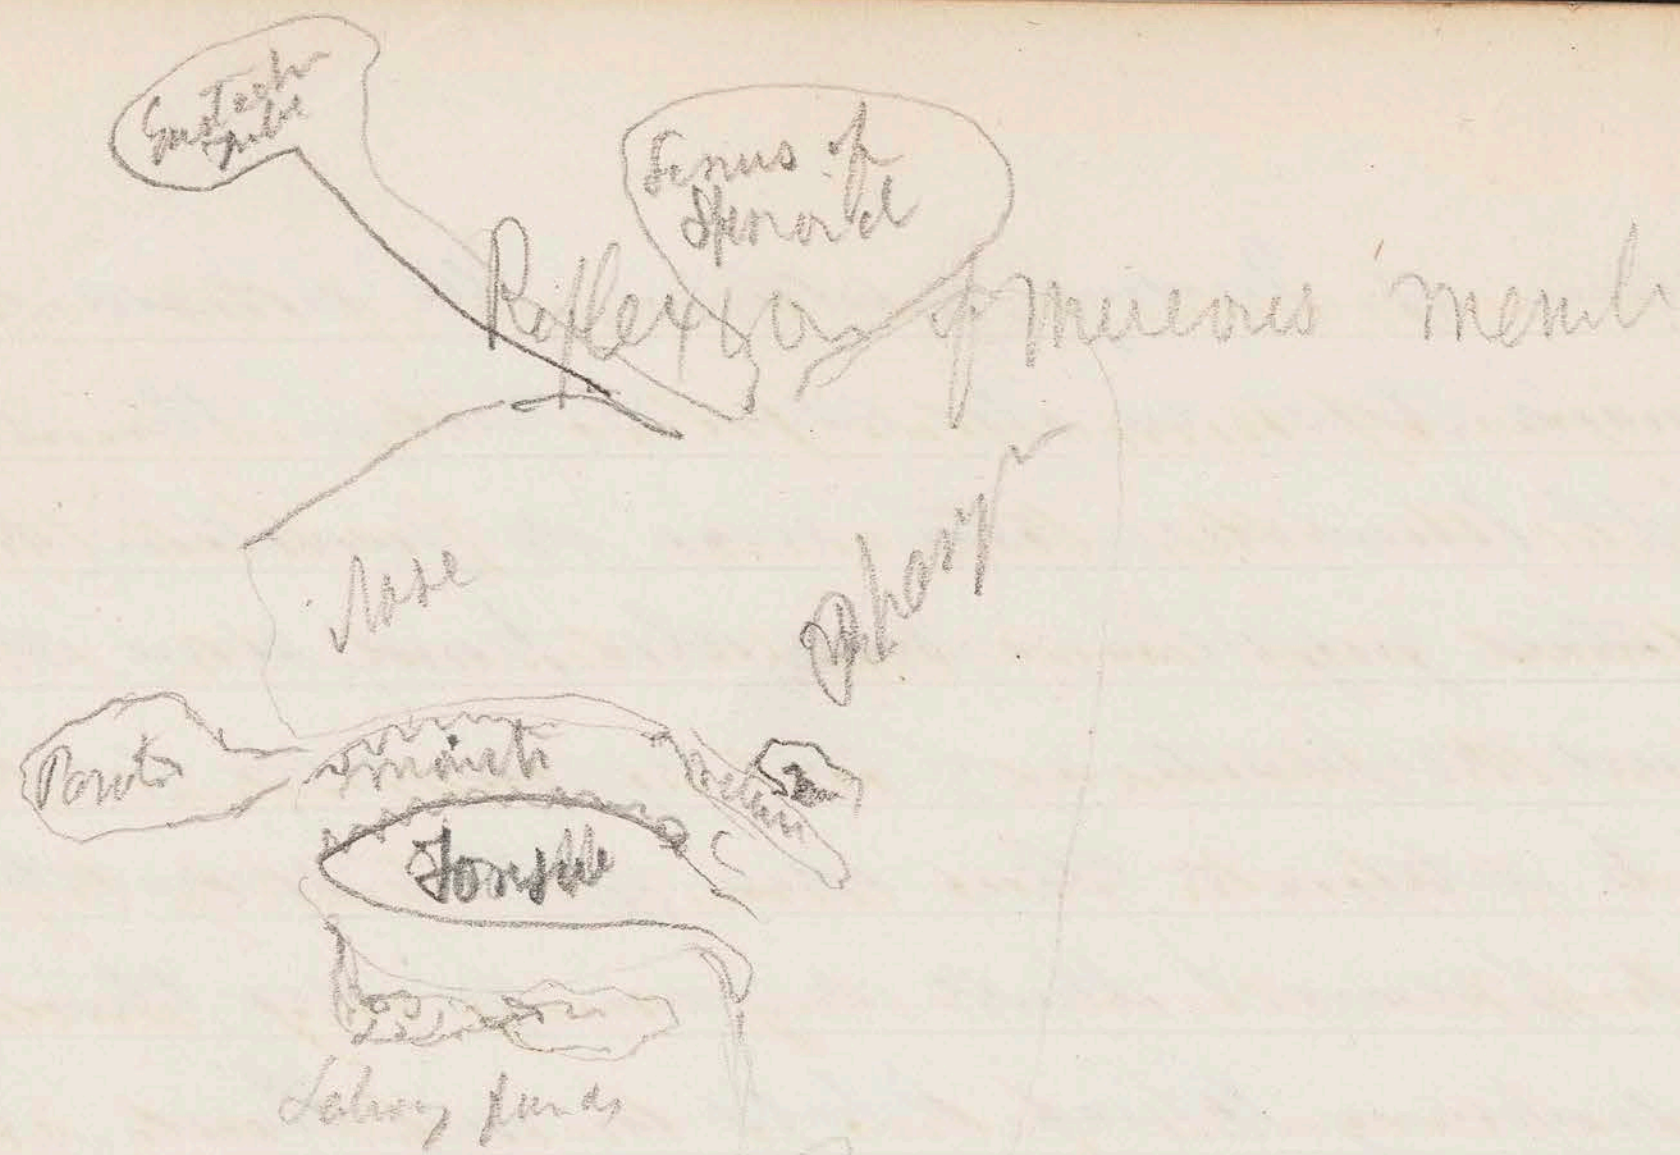 Eustach
tube
Sinus of
Spenoid
Reflexion of mucous memb
Nose
Pharyn
Parotid
mouth
velum
Tongue
Salivary glands